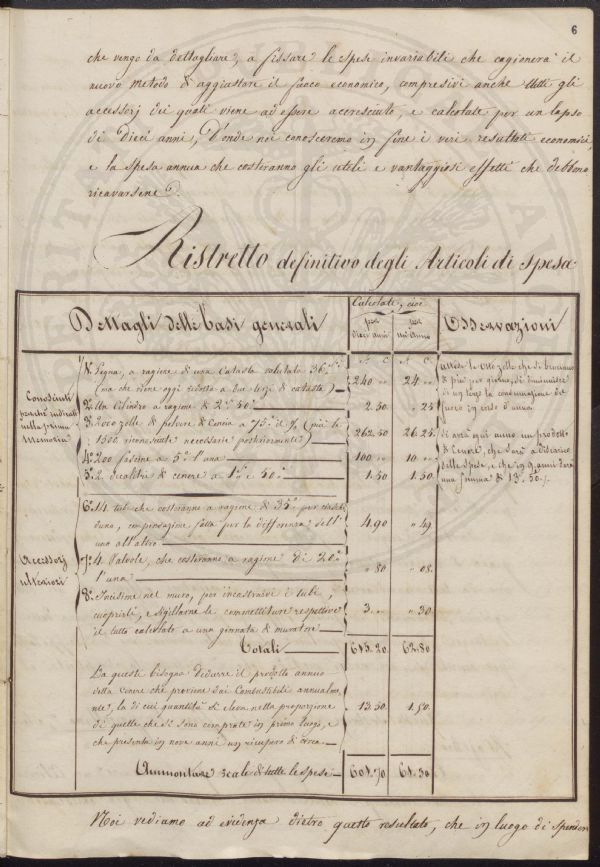 6
che vengo da dettagliare, a fissare le spese invariabili che cagionerà il
nuovo metodo di aggiustare il fuoco economico, compresivi anche tutti gli
accessorj dei quali viene ad essere accresciuto, e calcolate per un lapso
di Dieci anni, d'onde noi conosceremo in fine i veri resultati economici,
e la spesa annua che costeranno gli utili e vantaggiosi effetti che debbono
ricavarsene.
Ristretto definitivo degli Articoli di Spesa
Dettagli delle basi generali
Calcolate, cioè
per dieci anni
per un'Anno
Osservazioni
Conosciuti
perchè indicati
nella prima
Memoria
1.º Legna, a ragione di una Catasta valutata 36
(ma che viene oggi ridotta a due terze di catasta) 240 24
2.º Un Cilindro a ragione di 2. 50. 2.50 25
3.º zolle di polvere di Concia a 75 il % (più le
1500 riconosciute necessarie posteriormente) 262.50 26.25
4.º 200 fascine a 5 l'una 100 10
5.º 2 decalitri di cenere a 1 e 50 1.50 1.50
attese le otto zolle che si bruciano
di più per giorno, si diminuisce
di un terzo la consumazione del
fuoco in corso d'anno.
di avrà ogni anno un prodotto
di Cenere, che sarà a discarico
delle spese, e che in 9 anni darà
una somma di 13.50
Accessorj
ulteriori
6.º 14 tubi che costeranno a ragione di 35 per
duno, compensazione fatta per la differenza dell'
uno all'altro 4.90 49
7.º 4 Valvole, che costeranno a ragione di 20
l'una 80 08.
8.º Incisione nel muro, per incastrarvi i tubi,
cuoprirli, e sigillarne le commettiture respettive
il tutto calcolato a una giornata di muratore 3. 30
Totali 615.20 62.80
Da questi bisogna dedurre il prodotto annuo
della cenere che proviene dai Combustibili annualmen
te, la di cui quantità si eleva nella proporzione
di quelle che si sono comprate in primo luogo, e
che presenta in nove anni un ricupero di circa 13.50 1.50
Ammontare reale di tutte le spese 601.70 61.30
Noi vediamo ad evidenza dietro questo resultato, che in luogo di spendere